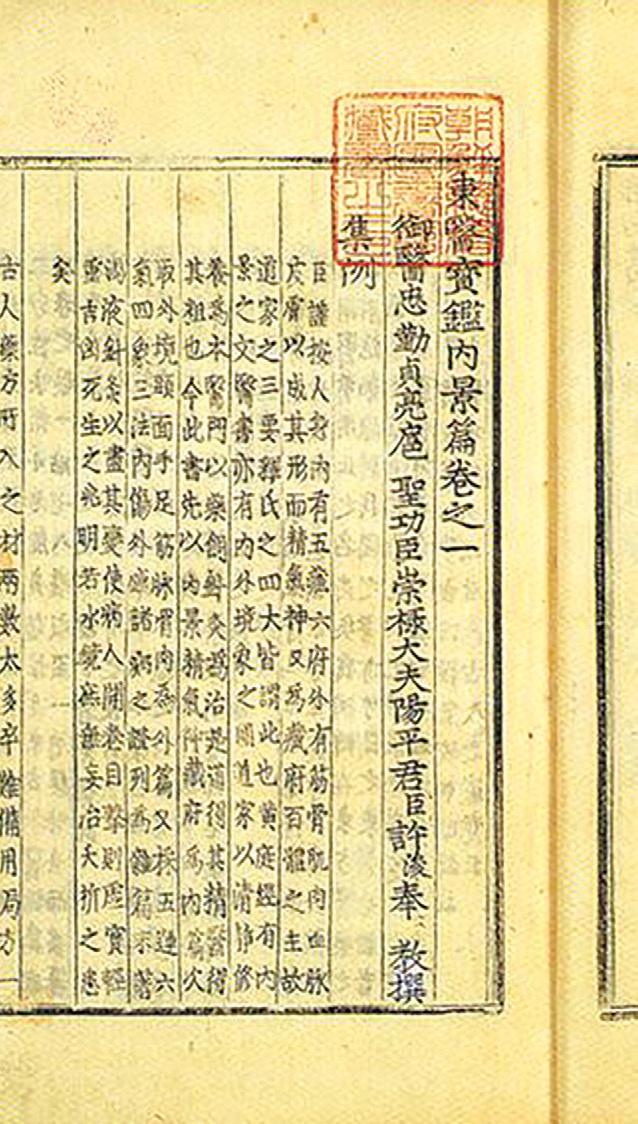 朝鮮總督府圖書館藏書之印
東醫寶鑑內景篇卷之一
御醫忠勤貞亮扈 聖功臣崇祿大夫陽平君臣許浚奉 教撰
集例
臣謹按人身內有五藏六府外有筋骨肌肉血脉
皮膚以成其形而精氣神又爲藏府百體之主故
道家之三要釋氏之四大皆謂此也黃庭經有內
景之文醫書亦有內外境象之圖道家以清靜修
養爲本醫門以藥餌鍼灸爲治是道得其精醫得
其粗也今此書先以內景精氣神藏府爲內篇次
取外境頭面手足筋脉骨肉爲外篇又採五運六
氣四象三法內傷外感諸病之證列爲雜篇末著
湯液針灸以盡其變使病人開卷目擊則虛實輕
重吉凶死生之兆明若水鏡庶無妄治夭折之患
矣
古人藥方所入之材兩數太多卒難備用局方一